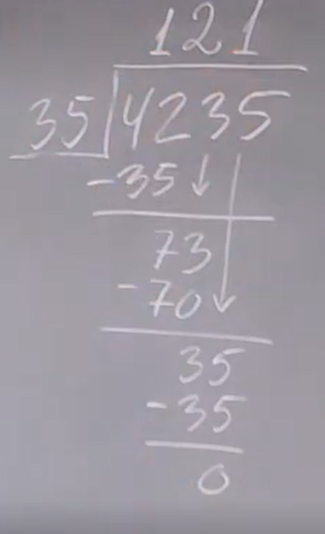 121
35 4235
-35
73
-70
35
-35
0